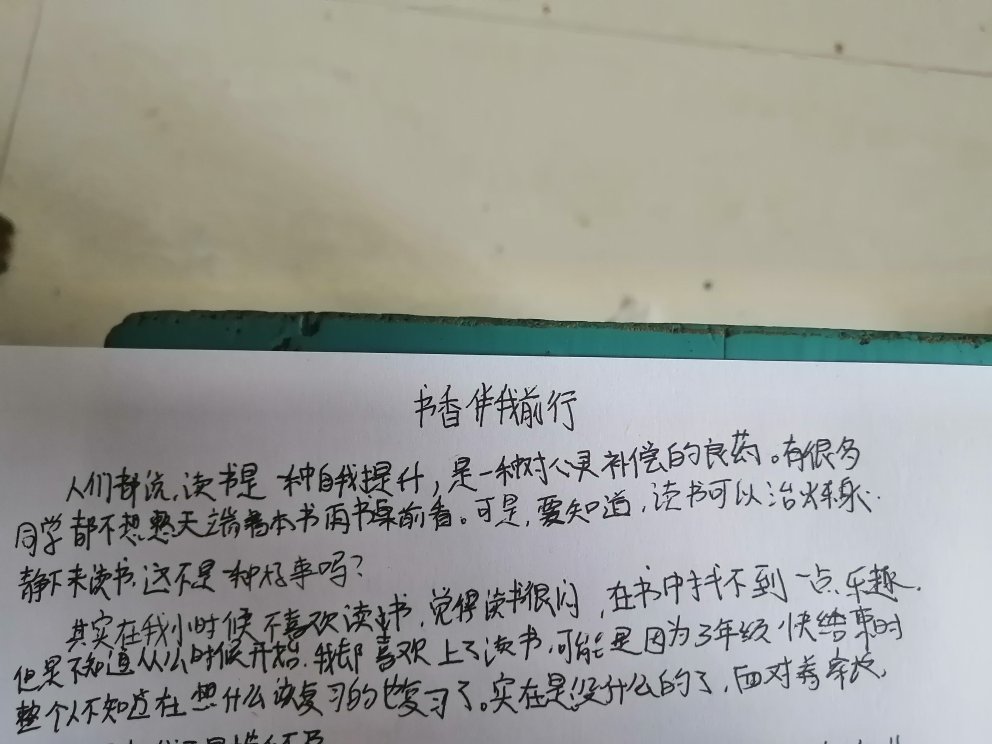 书香伴我前行
人们都说，读书是一种自我提升，是一种对心灵补偿的良药。有很多
同学都不想整天端着本书雨书桌前看。可是，要知道，读书可以治
静下来读书，这不是一种好事吗？
其实在我小时候不喜欢读书，觉得读书很闷，在书中找不到一点乐趣，
但是不知道从么时候开始，我却喜欢上了读书，可能是因为3年级快结束的
整个人不知道在想什么该复习的也复习了。实在是没什么的了，面对着家